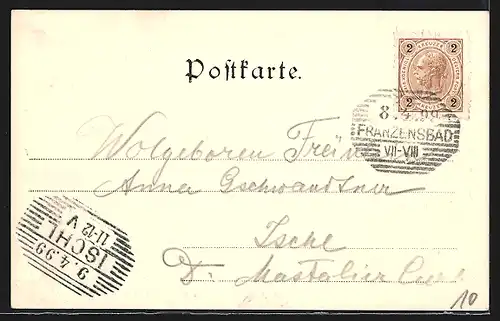 Postkarte.
2 KREUZER 2
2 2
8.4.99
FRANZENSBAD
VII-VIII
Wolgeboren Fräulein
Anna Gschwandtner
Ischl
9.4.99
ISCHL
11-12 V
D. Mastalier
10